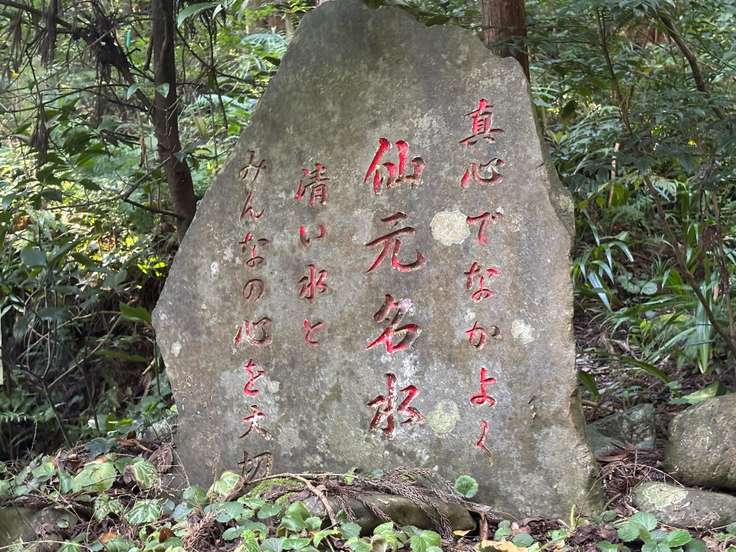 真心でなかよく
仙元名水
清い水と
みんなの心を大切